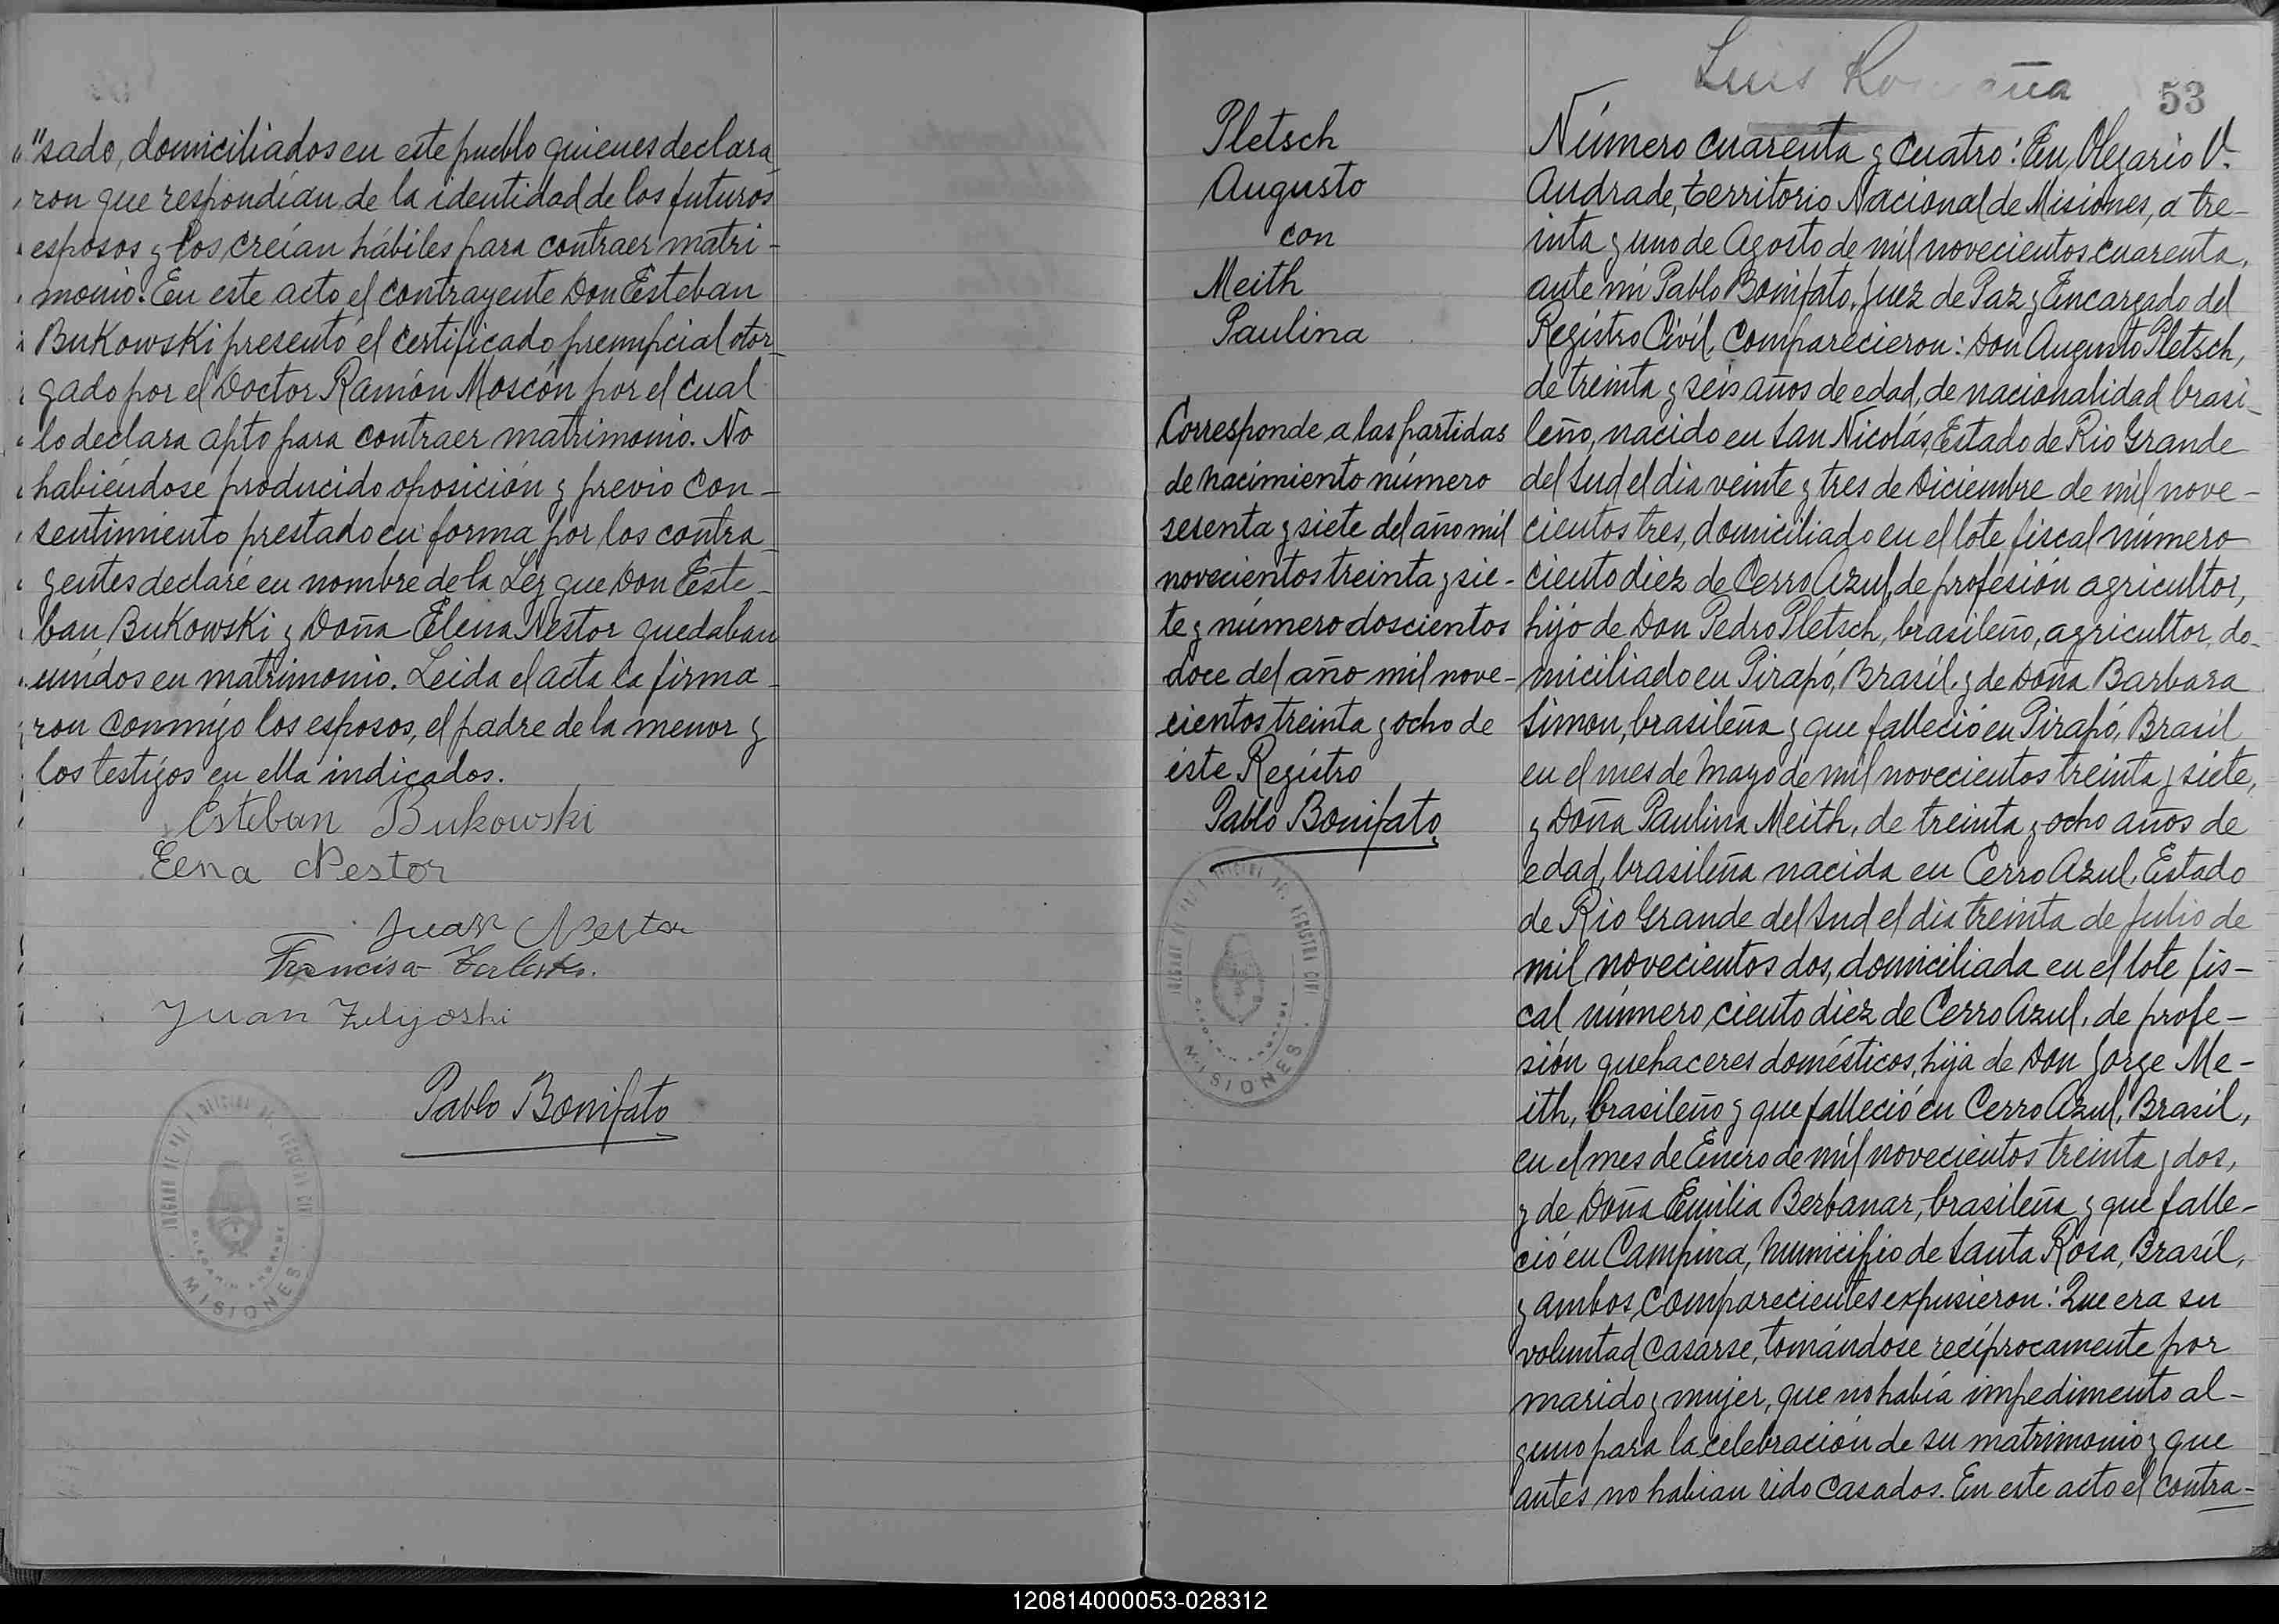 "sado, domiciliados en este pueblo quienes declara
ron que respondían de la identidad de los futuros
esposos y los creían hábiles para contraer matri-
monio. En este acto el contrayente Don Esteban
Bukowski presentó el certificado prenupcial otor-
gado por el Doctor Ramón Moscón por el cual
lo declara apto para contraer matrimonio. No
habiéndose producido oposición y previo con-
sentimiento prestado en forma por los contra-
yentes declaré en nombre de la Ley que Don Este-
ban Bukowski y Doña Elena Nestor quedaban
unidos en matrimonio. Leida el acta la firma-
ron conmigo los esposos, el padre de la menor y
los testigos en ella indicados.
Esteban Bukowski
Elena Nestor
Juan Nestor
Francisco
Juan
Pablo Bonifato
MISIONES
Pletsch
Augusto
con
Meith
Paulina
Corresponde a las partidas
de nacimiento número
sesenta y siete del año mil
novecientos treinta y sie-
te y número doscientos
doce del año mil nove-
cientos treinta y ocho de
éste Registro
Pablo Bonifato
REGISTRO CIVIL
MISIONES
Luis
53
Número cuarenta y cuatro: En Olegario V.
Andrade, territorio Nacional de Misiones, a tre-
inta y uno de Agosto de mil novecientos cuarenta,
ante mí Pablo Bonifato, Juez de Paz y Encargado del
Registro Civil, comparecieron: Don Augusto Pletsch,
de treinta y seis años de edad, de nacionalidad brasi-
leño, nacido en San Nicolás, Estado de Rio Grande
del Sud el día veinte y tres de Diciembre de mil nove-
cientos tres, domiciliado en el lote fiscal número
ciento diez de Cerro Azul, de profesión agricultor,
hijo de Don Pedro Pletsch, brasileño, agricultor, do-
miciliado en Pirapó, Brasil y de Doña Barbara
Simon, brasileña y que falleció en Pirapó, Brasil
en el mes de Mayo de mil novecientos treinta y siete,
y Doña Paulina Meith, de treinta y ocho años de
edad, brasileña nacida en Cerro Azul, Estado
de Rio Grande del Sud el día treinta de Julio de
mil novecientos dos, domiciliada en el lote fis-
cal número ciento diez de Cerro Azul, de profe-
sión quehaceres domésticos, hija de Don Jorge Me-
ith, brasileño y que falleció en Cerro Azul, Brasil,
en el mes de Enero de mil novecientos treinta y dos,
y de Doña Emilia Berbanar, brasileña y que falle-
ció en Campina, Municipio de Santa Rosa, Brasil,
y ambos comparecientes expusieron: Que era su
voluntad casarse, tomándose recíprocamente por
marido y mujer, que no había impedimento al-
guno para la celebración de su matrimonio y que
antes no habian sido casados. En este acto el contra-
120814000053-028312